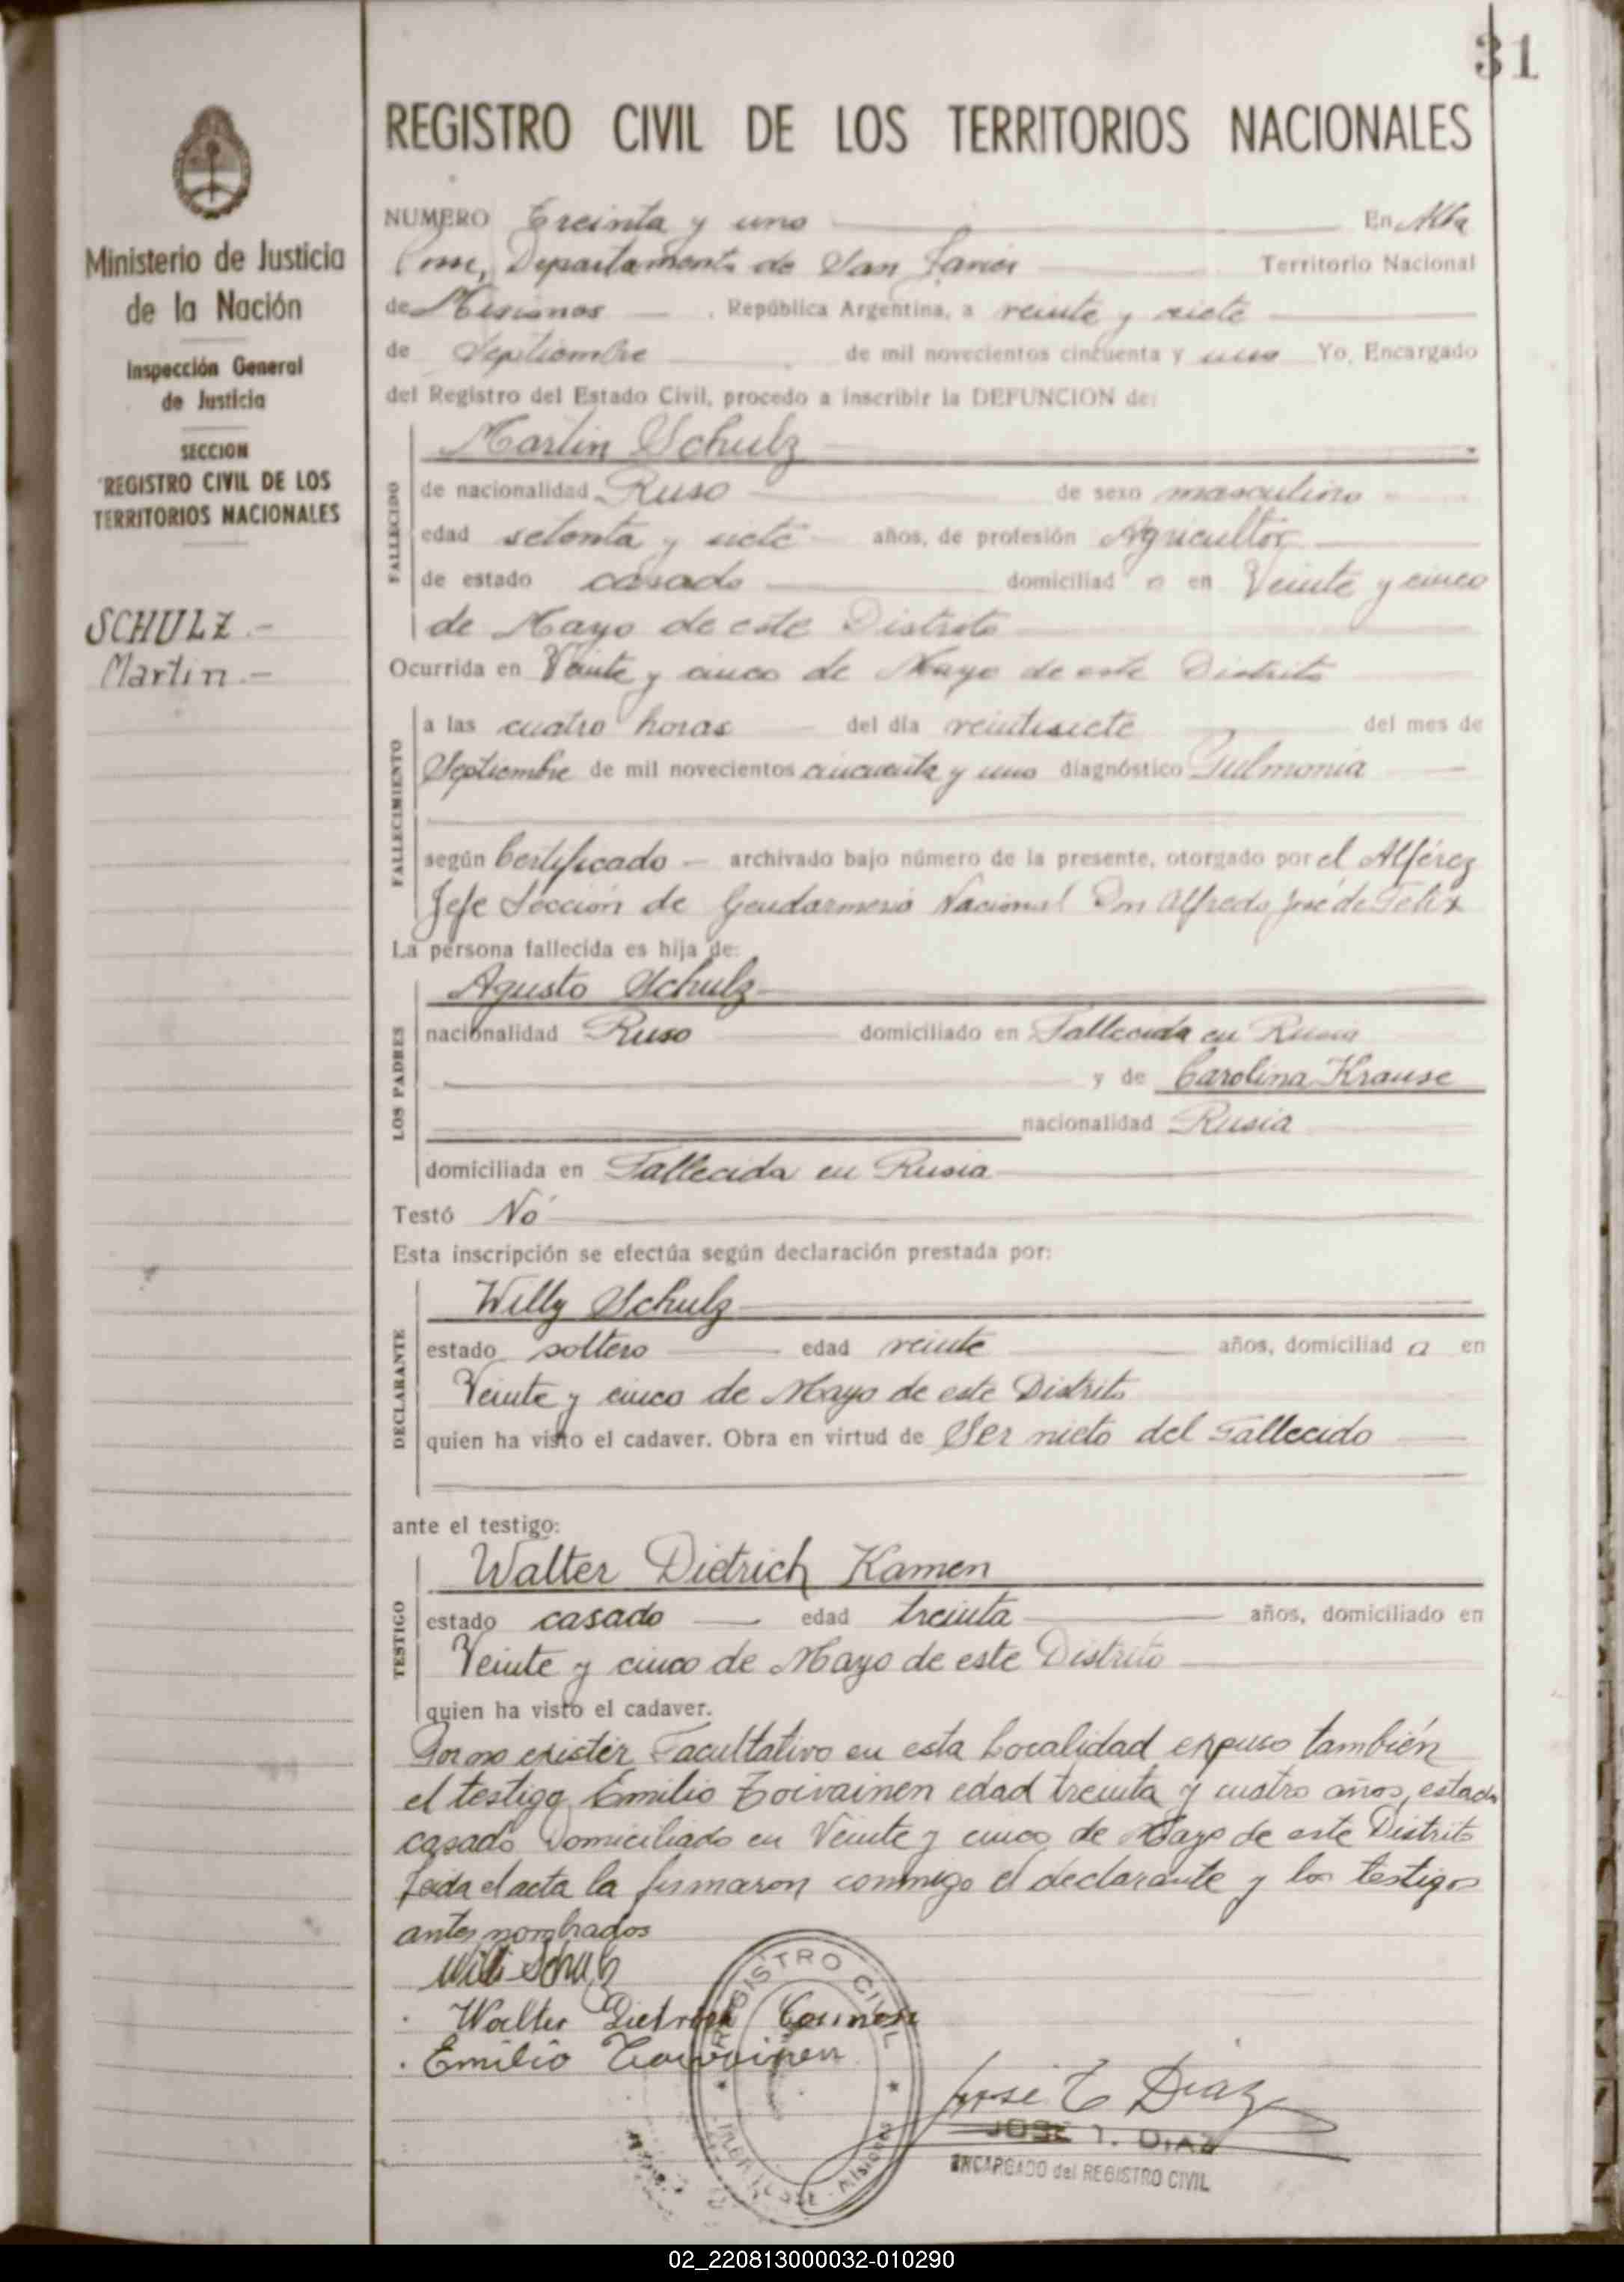 31
REGISTRO CIVIL DE LOS TERRITORIOS NACIONALES
Ministerio de Justicia
de la Nación
Inspección General
de Justicia
SECCION
REGISTRO CIVIL DE LOS
TERRITORIOS NACIONALES
SCHULZ.-
Martin.-
NUMERO Treinta y uno En Alba
Posse, Departamento de San Javier Territorio Nacional
de Misiones . República Argentina, a veinte y siete
de Septiembre de mil novecientos cincuenta y uno Yo, Encargado
del Registro del Estado Civil, procedo a inscribir la DEFUNCION de:
FALLECIDO
Martin Schulz
de nacionalidad Ruso de sexo masculino
edad setenta y siete años, de profesión Agricultor
de estado casado domiciliad o en Veinte y cinco
de Mayo de este Distrito
Ocurrida en Veinte y cinco de Mayo de este Distrito
FALLECIMIENTO
a las cuatro horas del día veintisiete del mes de
Septiembre de mil novecientos cincuenta y uno diagnóstico Pulmonia
según Certificado archivado bajo número de la presente, otorgado por el Alférez
Jefe Sección de Gendarmeria Nacional Don Alfredo José de Felix
La persona fallecida es hija de:
LOS PADRES
Agusto Schulz
nacionalidad Ruso domiciliado en Fallecido en Rusia
y de Carolina Krause
nacionalidad Rusia
domiciliada en Fallecida en Rusia
Testó No
Esta inscripción se efectúa según declaración prestada por:
DECLARANTE
Willy Schulz
estado soltero edad veinte años, domiciliad o en
Veinte y cinco de Mayo de este Distrito
quien ha visto el cadaver. Obra en virtud de Ser nieto del Fallecido
ante el testigo:
TESTIGO
Walter Dietrich Kamen
estado casado edad treinta años, domiciliado en
Veinte y cinco de Mayo de este Distrito
quien ha visto el cadaver.
Por no existir Facultativo en esta Localidad expuso también
el testigo Emilio Toivainen edad treinta y cuatro años, estado
casado Domiciliado en Veinte y cinco de Mayo de este Distrito
Leida el acta la firmaron conmigo el declarante y los testigos
antes nombrados
Willi Schulz
Walter Dietrich
Emilio Toivainen
REGISTRO CIVIL
MISIONES
José T Diaz
JOSE T. DIAZ
ENCARGADO del REGISTRO CIVIL
02_220813000032-010290